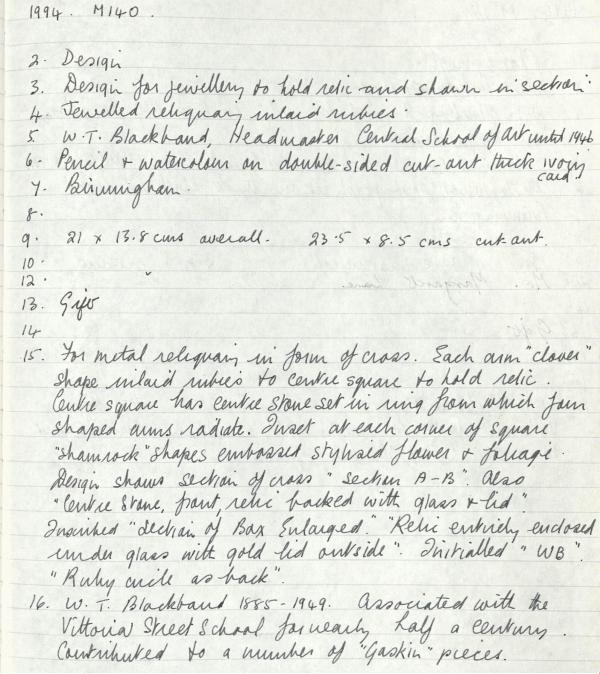 1994. M140.
2. Design
3. Design for jewellery to hold relic and shown in section.
4. Jewelled reliquary inlaid rubies.
5. W.T. Blackband, Headmaster Central School of Art until 1946
6. Pencil + watercolour on double-sided cut-out thick ivory card.
7. Birmingham.
8.
9. 21 x 13.8 cms overall. 23.5 x 8.5 cms cut-out.
10.
12. "
13. Gift
14
15. For metal reliquary in form of cross. Each arm "clover"
shape inlaid rubies to centre square to hold relic.
Centre square has centre stone set in ring from which four
shaped arms radiate. Inset at each corner of square
"shamrock" shapes embossed stylised flower + foliage.
Design shows section of cross "section A-B". Also
"Centre Stone, front, relic backed with glass & lid".
Inscribed "Section of Box Enlarged." "Relic entirely enclosed
under glass with gold lid outside". Initialled "WB".
"Ruby circle as back".
16. W.T. Blackband 1885-1949. Associated with the
Vittoria Street School for nearly half a century.
Contributed to a number of "Gaskin" pieces.